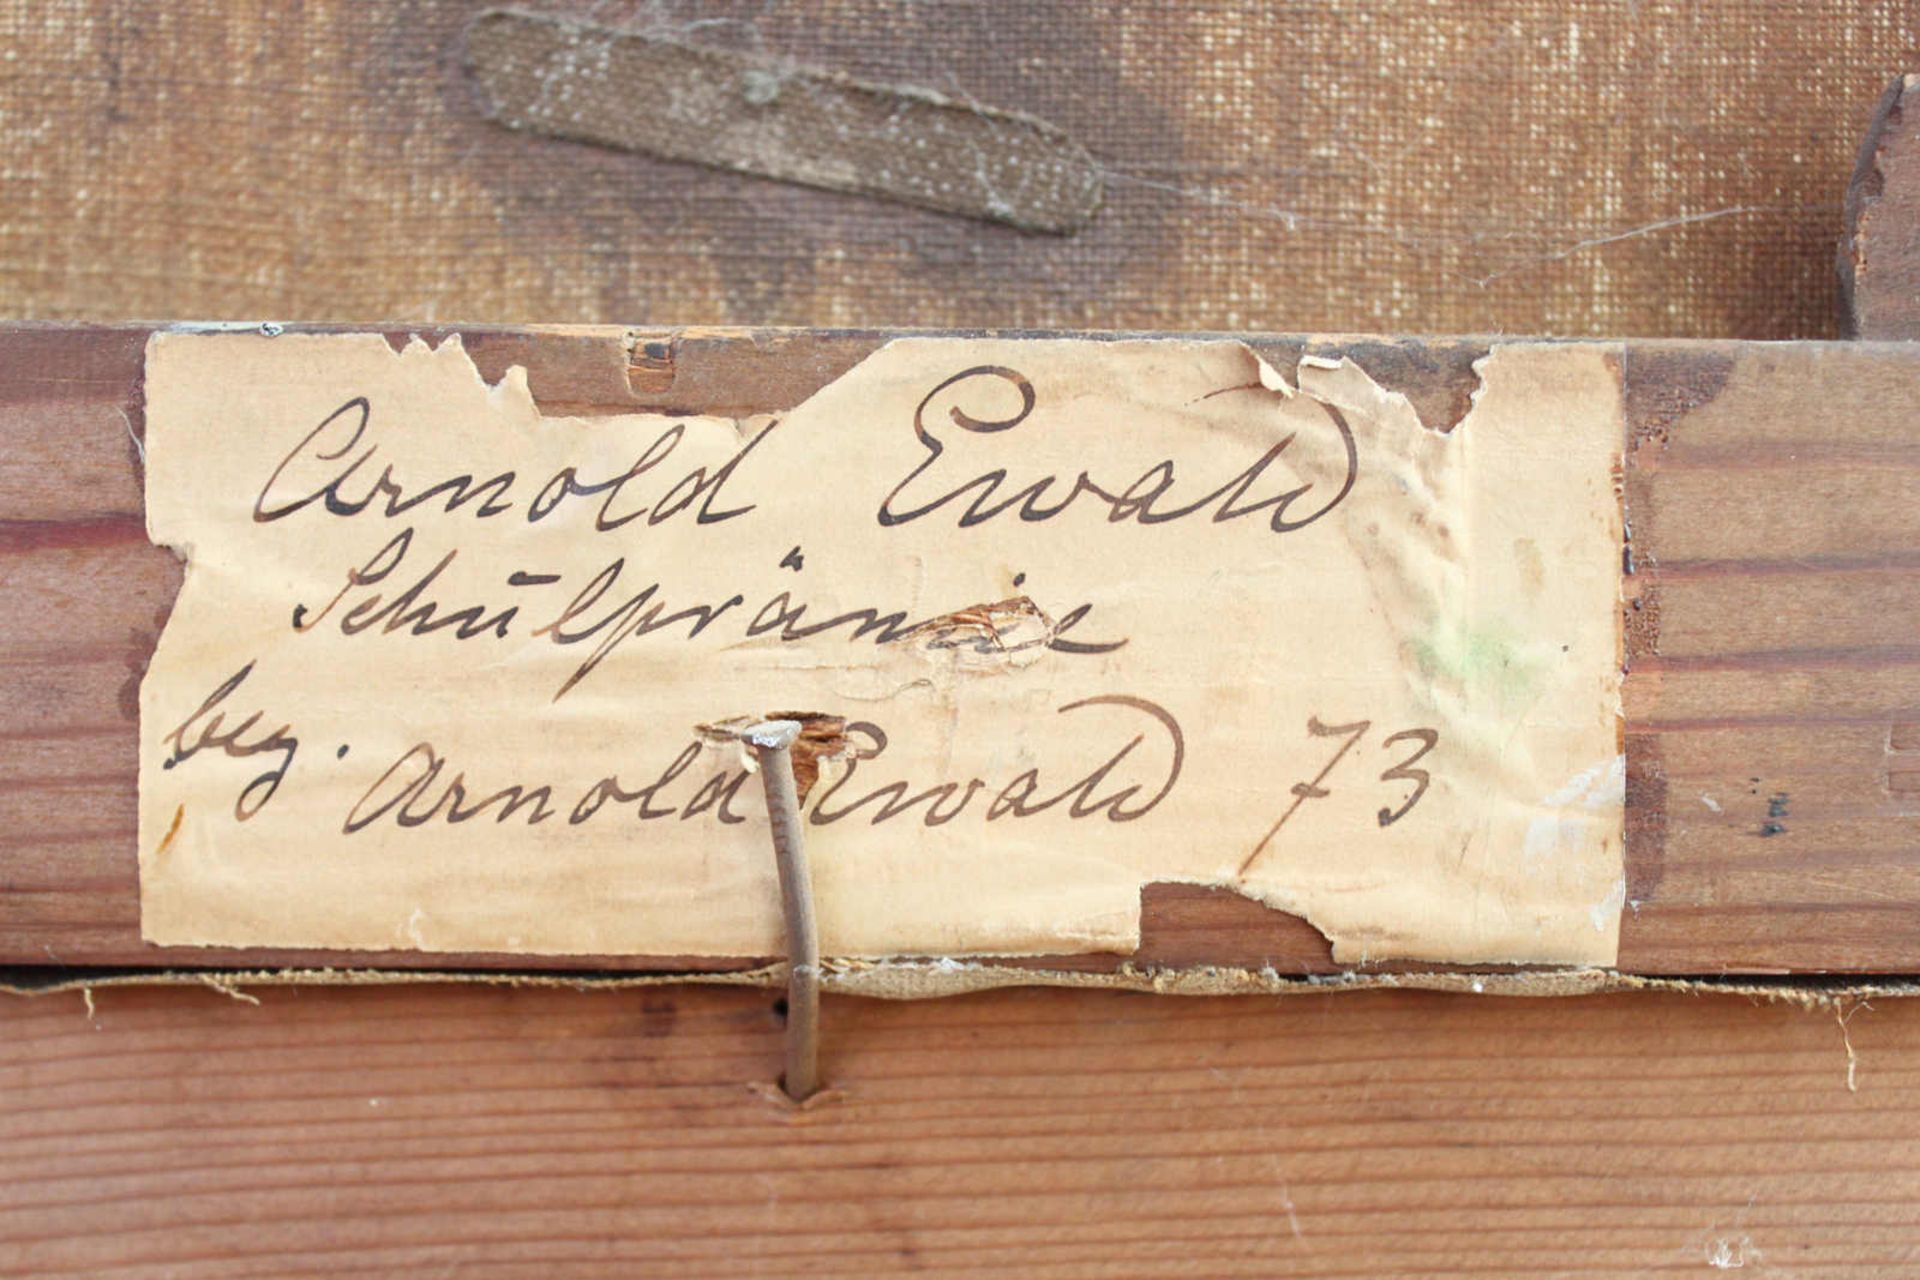 Arnold Ewald
Schulprämie
bez. Arnold Ewald 73